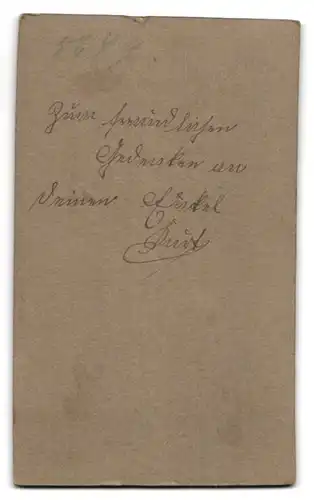 Zum freundlichen
Gedenken an
deinen Enkel
Kurt